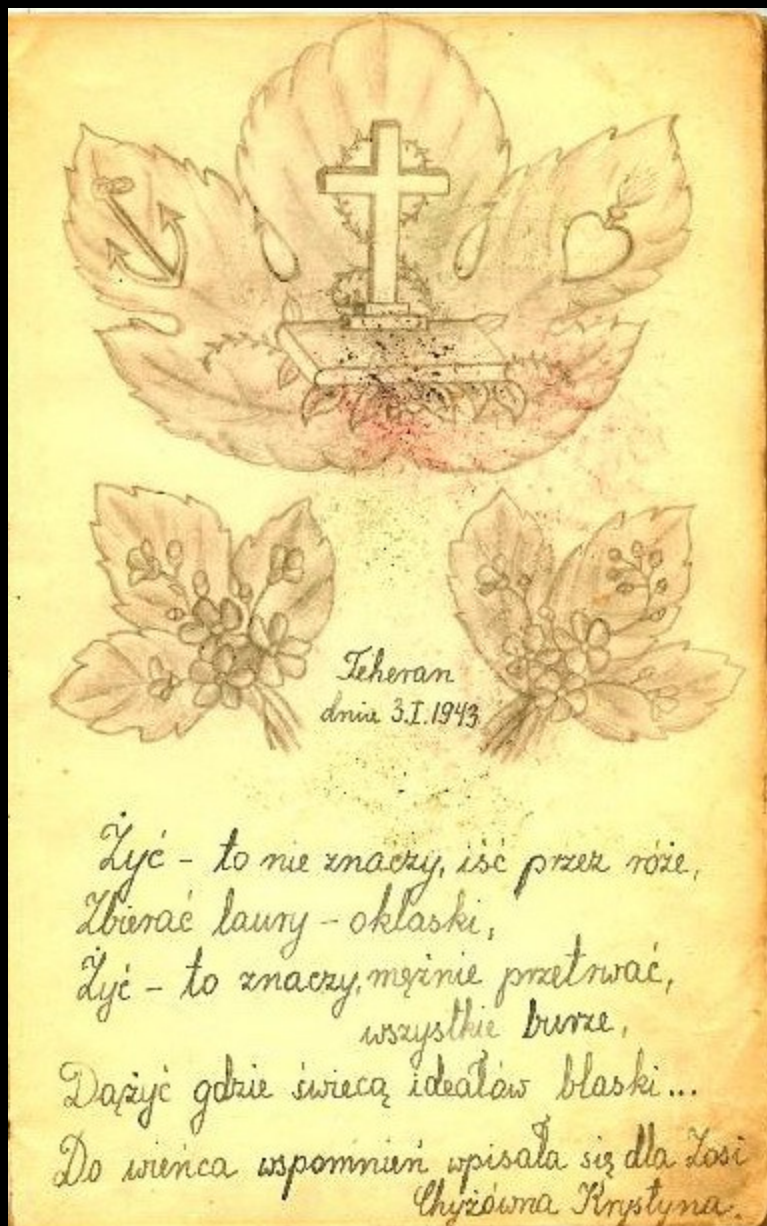 Teheran
dnia 3.I.1943
Żyć - to nie znaczy, iść przez róże,
Zbierać laury - oklaski,
Żyć - to znaczy, mężnie przetrwać,
wszystkie burze,
Dążyć gdzie świecą ideałów blaski...
Do wieńca wspomnień wpisała się dla Zosi
Chyżówna Krystyna.